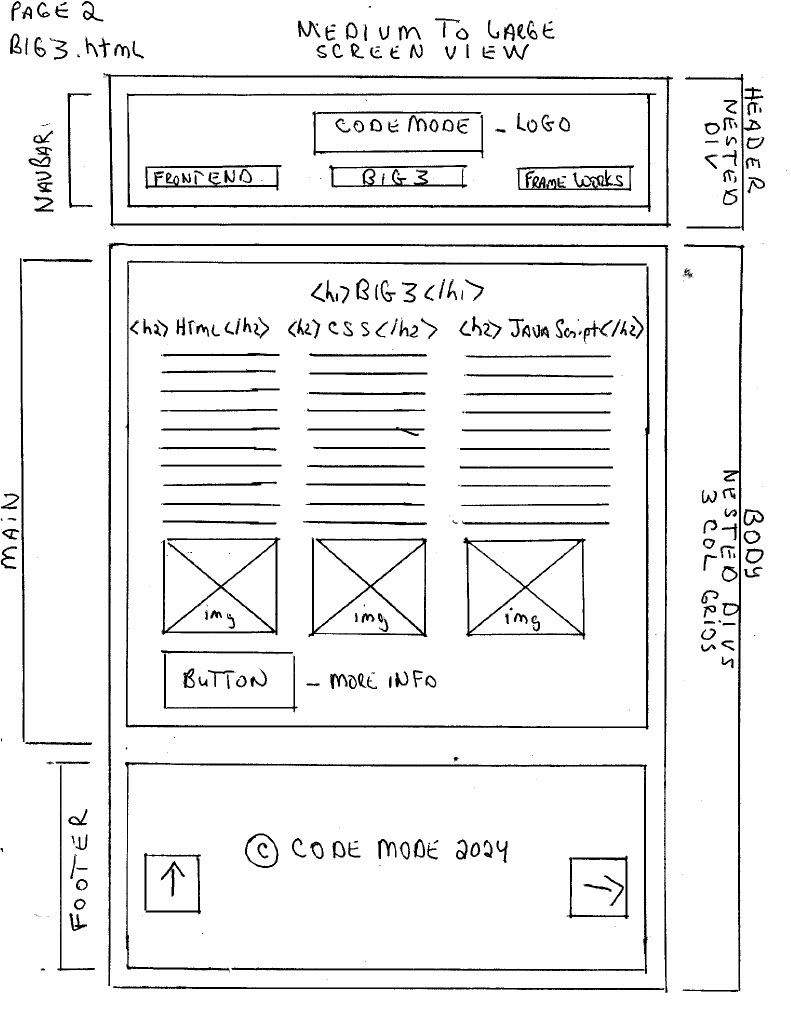 PAGE 2
BIG3.html
MEDIUM TO LARGE
SCREEN VIEW
NAVBAR
CODE MODE - LOGO
FRONTEND
BIG 3
FRAME WORKS
HEADER
NESTED
DIV
MAIN
<h1>BIG 3</h1>
<h2>HTML</h2>
<h2>CSS</h2>
<h2>JAVAScript</h2>
img
img
img
BUTTON - MORE INFO
BODY
NESTED DIVS
3 COL GRIDS
FOOTER
© CODE MODE 2024
↑
→